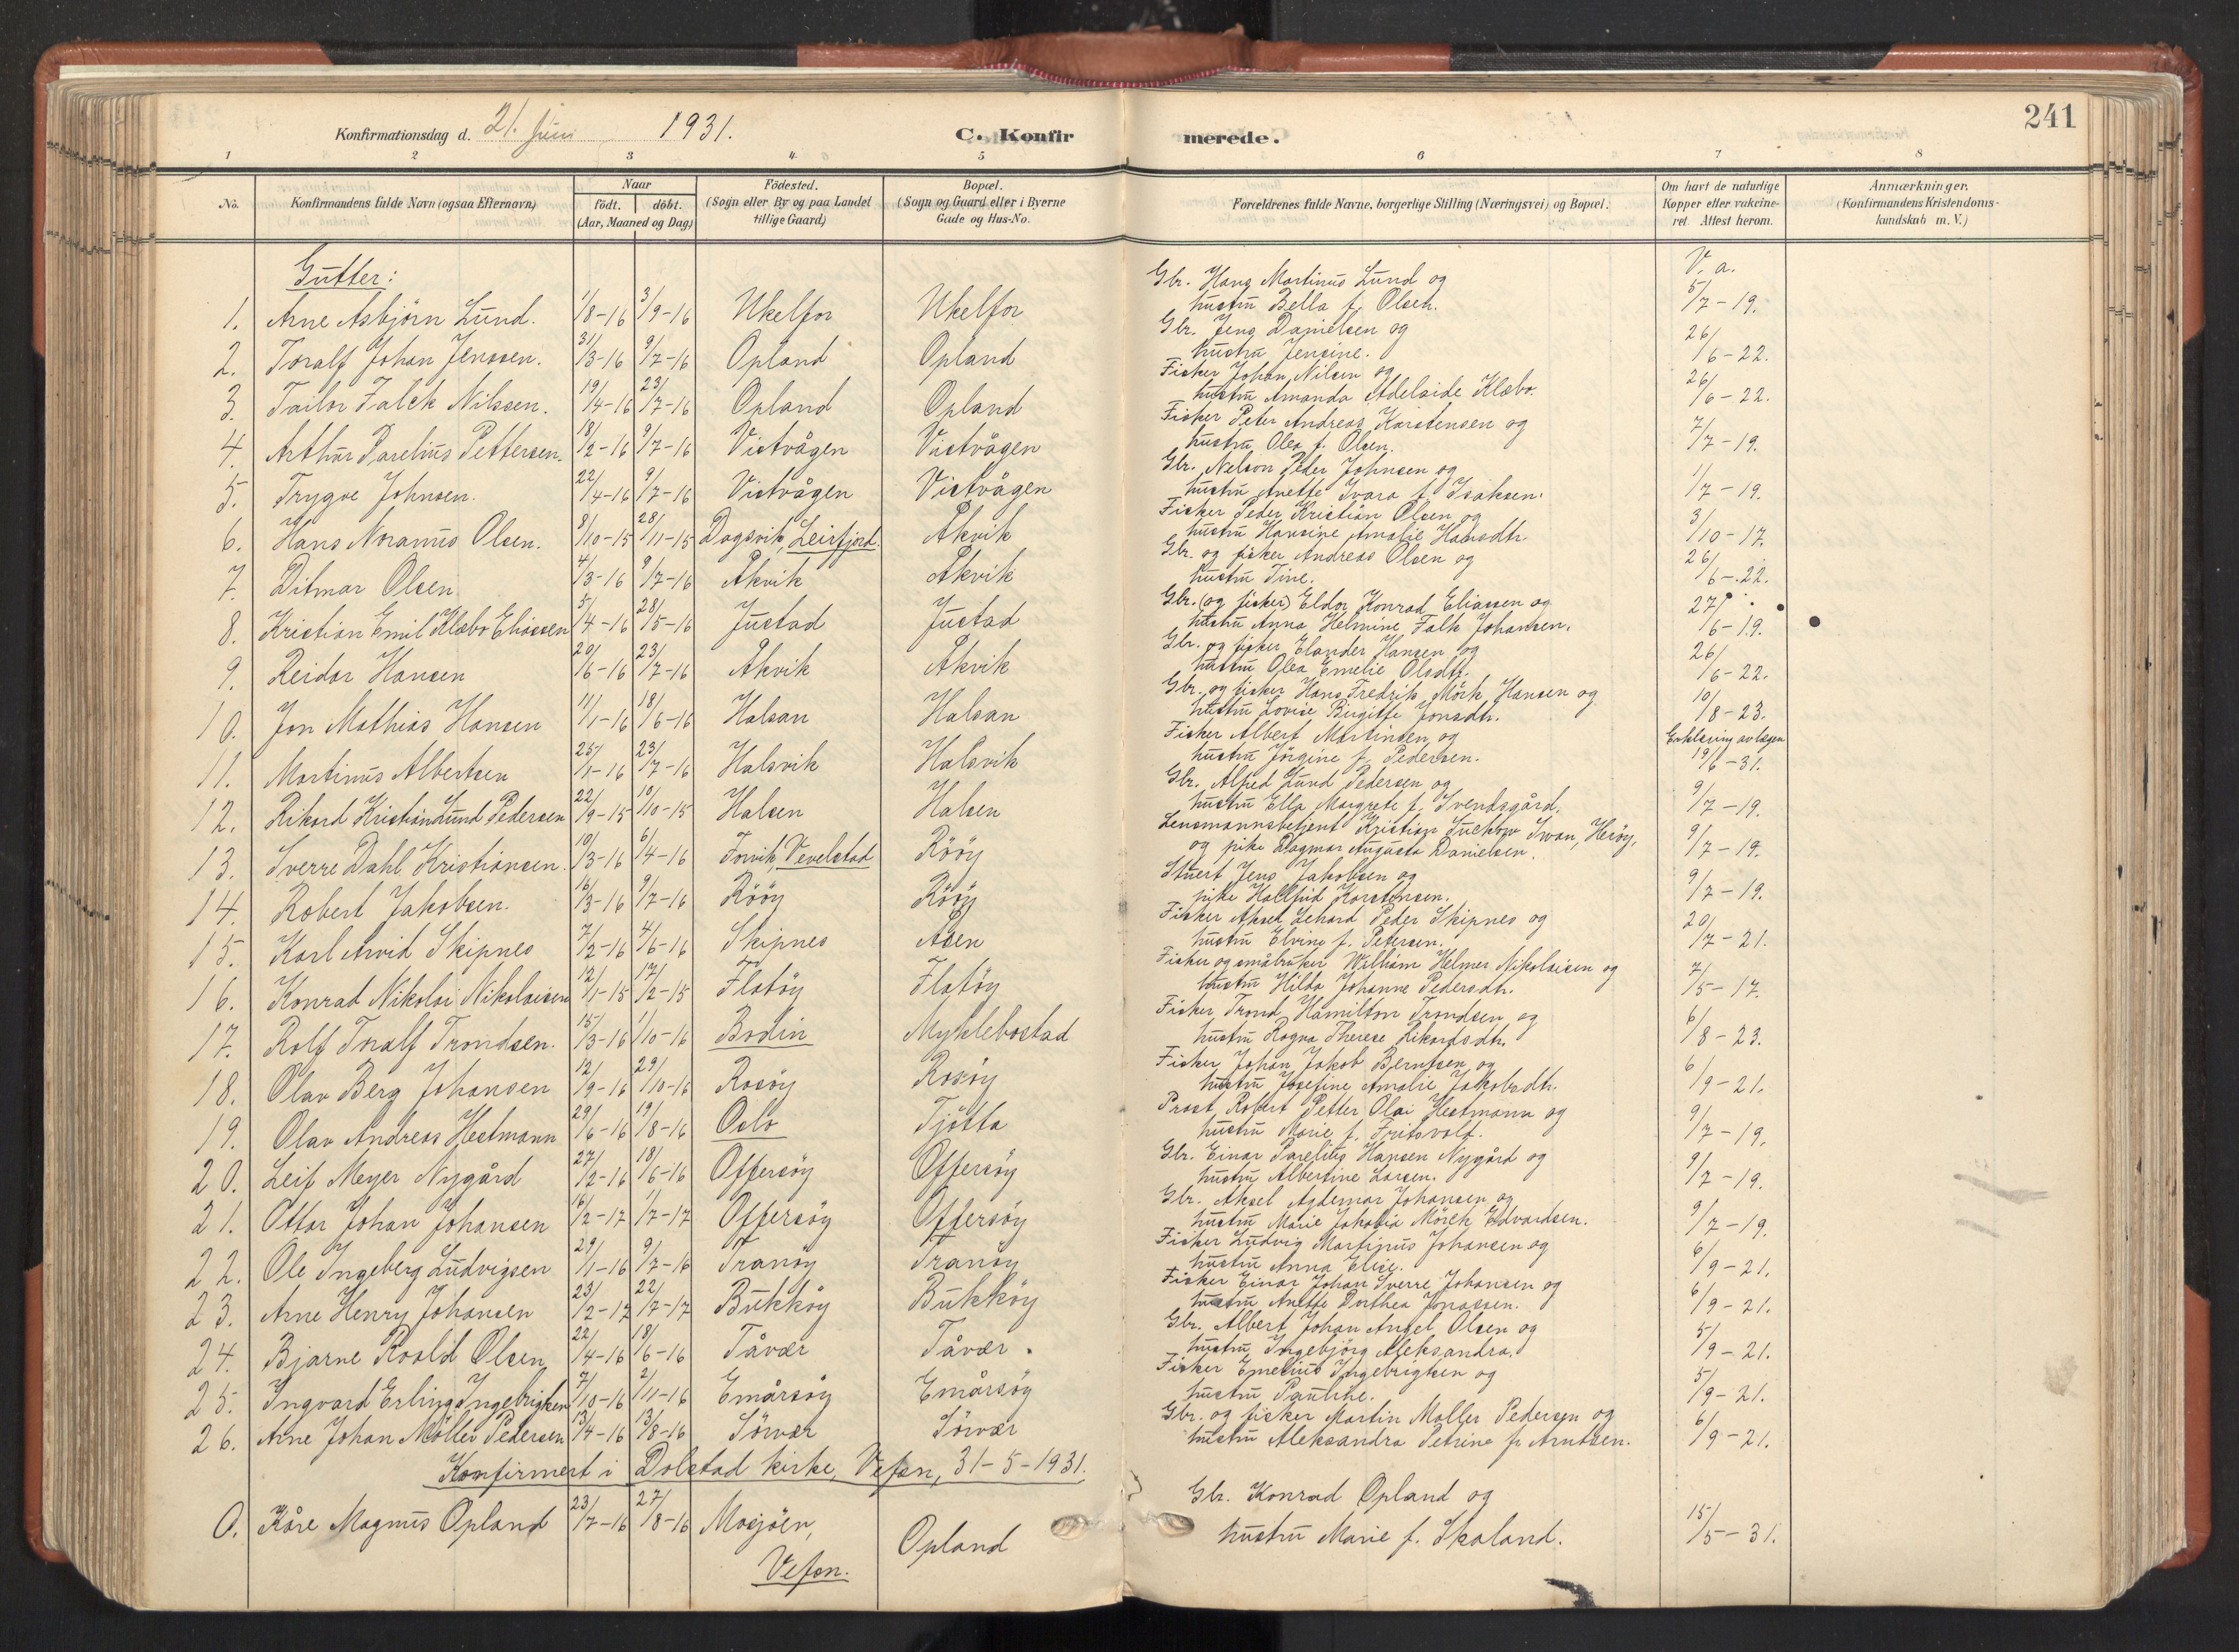 241
Konfirmationsdag d. 21. juni 1931.
C. Konfir merede.
1 2 3 4 5 6 7 8
No.
Konfirmandens fulde Navn (ogsaa Efternavn)
Naar
født. døbt.
(Aar, Maaned og Dag)
Fødested.
(Sogn eller By og paa Landet
tillige Gaard)
Bopæl.
(Sogn og Gaard eller i Byerne
Gade og Hus-No.
Forældrenes fulde Navne, borgerlige Stilling (Næringsvei) og Bopæl.
Om havt de naturlige
Kopper eller vakcine-
ret. Attest herom.
Anmærkninger.
(Konfirmandens Kristendoms-
kundskab m. V.)
Gutter:
V. a.
Gbr. Hans Martinus Lund og
1. Arne Asbjörn Lund. 1/8-16 3/9-16 Ukelfor Ukelfor hustru Bella f. Olsen. 5/7-19.
Gbr. Jens Danielsen og
2. Toralf Johan Jenssen. 31/3-16 9/7-16 Opland Opland hustru Jensine. 26/6-22.
Fisker Johan Nilsen og
3. Tailor Falck Nilssen. 19/4-16 23/7-16 Opland Opland hustru Amanda Adelaide Klæbo. 26/6-22.
Fisker Peter Andreas Karstensen og
4. Arthur Parelius Pettersen. 18/2-16 9/7-16 Vistvågen Vistvågen hustru Olea f. Olsen. 7/7-19.
Gbr. Nelson Peder Johnsen og
5. Trygve Johnsen. 22/4-16 9/7-16 Vistvågen Vistvågen hustru Anette Ivara f. Isaksen. 1/7-19.
Fisker Peder Kristian Olsen og
6. Hans Noranus Olsen. 8/10-15 28/11-15 Dagsvik, Leirfjord. Åkvik hustru Hansine Amalie Hansdtr. 3/10-17.
Gbr. og fisker Andreas Olsen og
7. Ditmar Olsen 4/3-16 9/7-16 Åkvik Åkvik hustru Tine. 26/6-22.
Gbr. (og fisker) Eldor Konrad Eliassen og
8. Kristian Emil Klæbo Eliassen 5/4-16 28/5-16 Justad Justad hustru Anna Helmine Falk Johansen. 27/6-19.
Gbr. og fisker Elander Hansen og
9. Reidar Hansen 20/6-16 23/7-16 Åkvik Åkvik hustru Olea Emelie Olsdtr. 26/6-22.
Gbr. og fisker Hans Fredrik Mörk Hansen og
10. Jon Mathias Hansen 11/1-16 18/6-16 Halsan Halsan hustru Lovise Birgitte Jonsdtr. 10/8-23.
Fisker Albert Martinsen og Erklæring av lægen
11. Martinus Albertsen 25/1-16 23/7-16 Halsvik Halsvik hustru Jörgine f. Pedersen. 19/6-31.
Gbr. Alfred Lund Pedersen og
12. Rikard Kristian Lund Pedersen 22/9-15 10/10-15 Halsen Halsen hustru Ella Margrete f. Svendsgård. 9/7-19.
Lensmannsbetjent Kristian Suckow Swan, Heröy,
13. Sverre Dahl Kristiansen. 10/3-16 6/4-16 Forvik, Vevelstad Rööy og pike Dagmar Augusta Danielsen. 9/7-19.
Stuert Jens Jakobsen og
14. Robert Jakobsen. 16/3-16 9/7-16 Rööy Rööy pike Hallfrid Karstensen. 9/7-19.
Fisker Aksel Lehard Peder Skipnes og
15. Karl Arvid Skipnes 7/2-16 4/6-16 Skipnes Åsen hustru Elvine f. Petersen. 20/7-21.
Fisker og småbruker William Helmer Nikolaisen og
16. Konrad Nikolai Nikolaisen 12/1-15 17/2-15 Flatöy Flatöy hustru Hilda Johanne Pedersdtr. 7/5-17.
Fisker Trond Hamilton Trondsen og
17. Rolf Toralf Trondsen. 15/3-16 1/10-16 Bodin Myklebostad hustru Ragna Therese Rikardsdtr. 6/8-23.
Fisker Johan Jakob Berntsen og
18. Olav Berg Johansen 12/9-16 29/10-16 Rosöy Rosöy hustru Josefine Amalie Jakobsdtr. 6/9-21.
Prost Robert Petter Olai Hestmann og
19. Olav Andreas Hestmann 29/6-16 19/8-16 Oslo Tjötta hustru Marie f. Fritsvold. 9/7-19.
Gbr. Einar Parelius Hansen Nygård og
20. Leif Meyer Nygård 27/2-16 18/6-16 Offersöy Offersöy hustru Albertine Larsen. 9/7-19.
Gbr. Aksel Agtemar Johansen og
21. Ottar Johan Johansen 16/2-17 1/7-17 Offersöy Offersöy hustru Marie Jakobia Mörch Edvardsen. 9/7-19.
Fisker Ludvig Martinus Johansen og
22. Ole Ingeberg Ludvigsen 29/1-16 9/7-16 Tranöy Tranöy hustru Anna Elise. 6/9-21.
Fisker Einar Johan Sverre Johansen og
23. Arne Henry Johansen 23/2-17 22/7-17 Bukköy Bukköy hustru Anette Dorthea Jonassen. 6/9-21.
Gbr. Albert Johan Angel Olsen og
24. Bjarne Roald Olsen 22/4-16 18/6-16 Tåvær Tåvær. hustru Ingebjörg Aleksandra. 5/9-21.
Fisker Emelius Ingebrigtsen og
25. Ingvard Erling Ingebrigtsen 7/10-16 2/11-16 Emårsöy Emårsöy hustru Pauline. 5/9-21.
Gbr. og fisker Martin Møller Pedersen og
26. Arne Johan Möller Pedersen 13/4-16 13/8-16 Sörvær Sörvær hustru Aleksandra Petrine f. Arntsen. 6/9-21.
Konfirmert i Dolstad kirke, Vefsn, 31-5-1931.
Gbr. Konrad Opland og
0. Kåre Magnus Opland 23/7-16 27/8-16 Mosjöen, Opland hustru Marie f. Skaland. 15/5-31.
Vefsn.